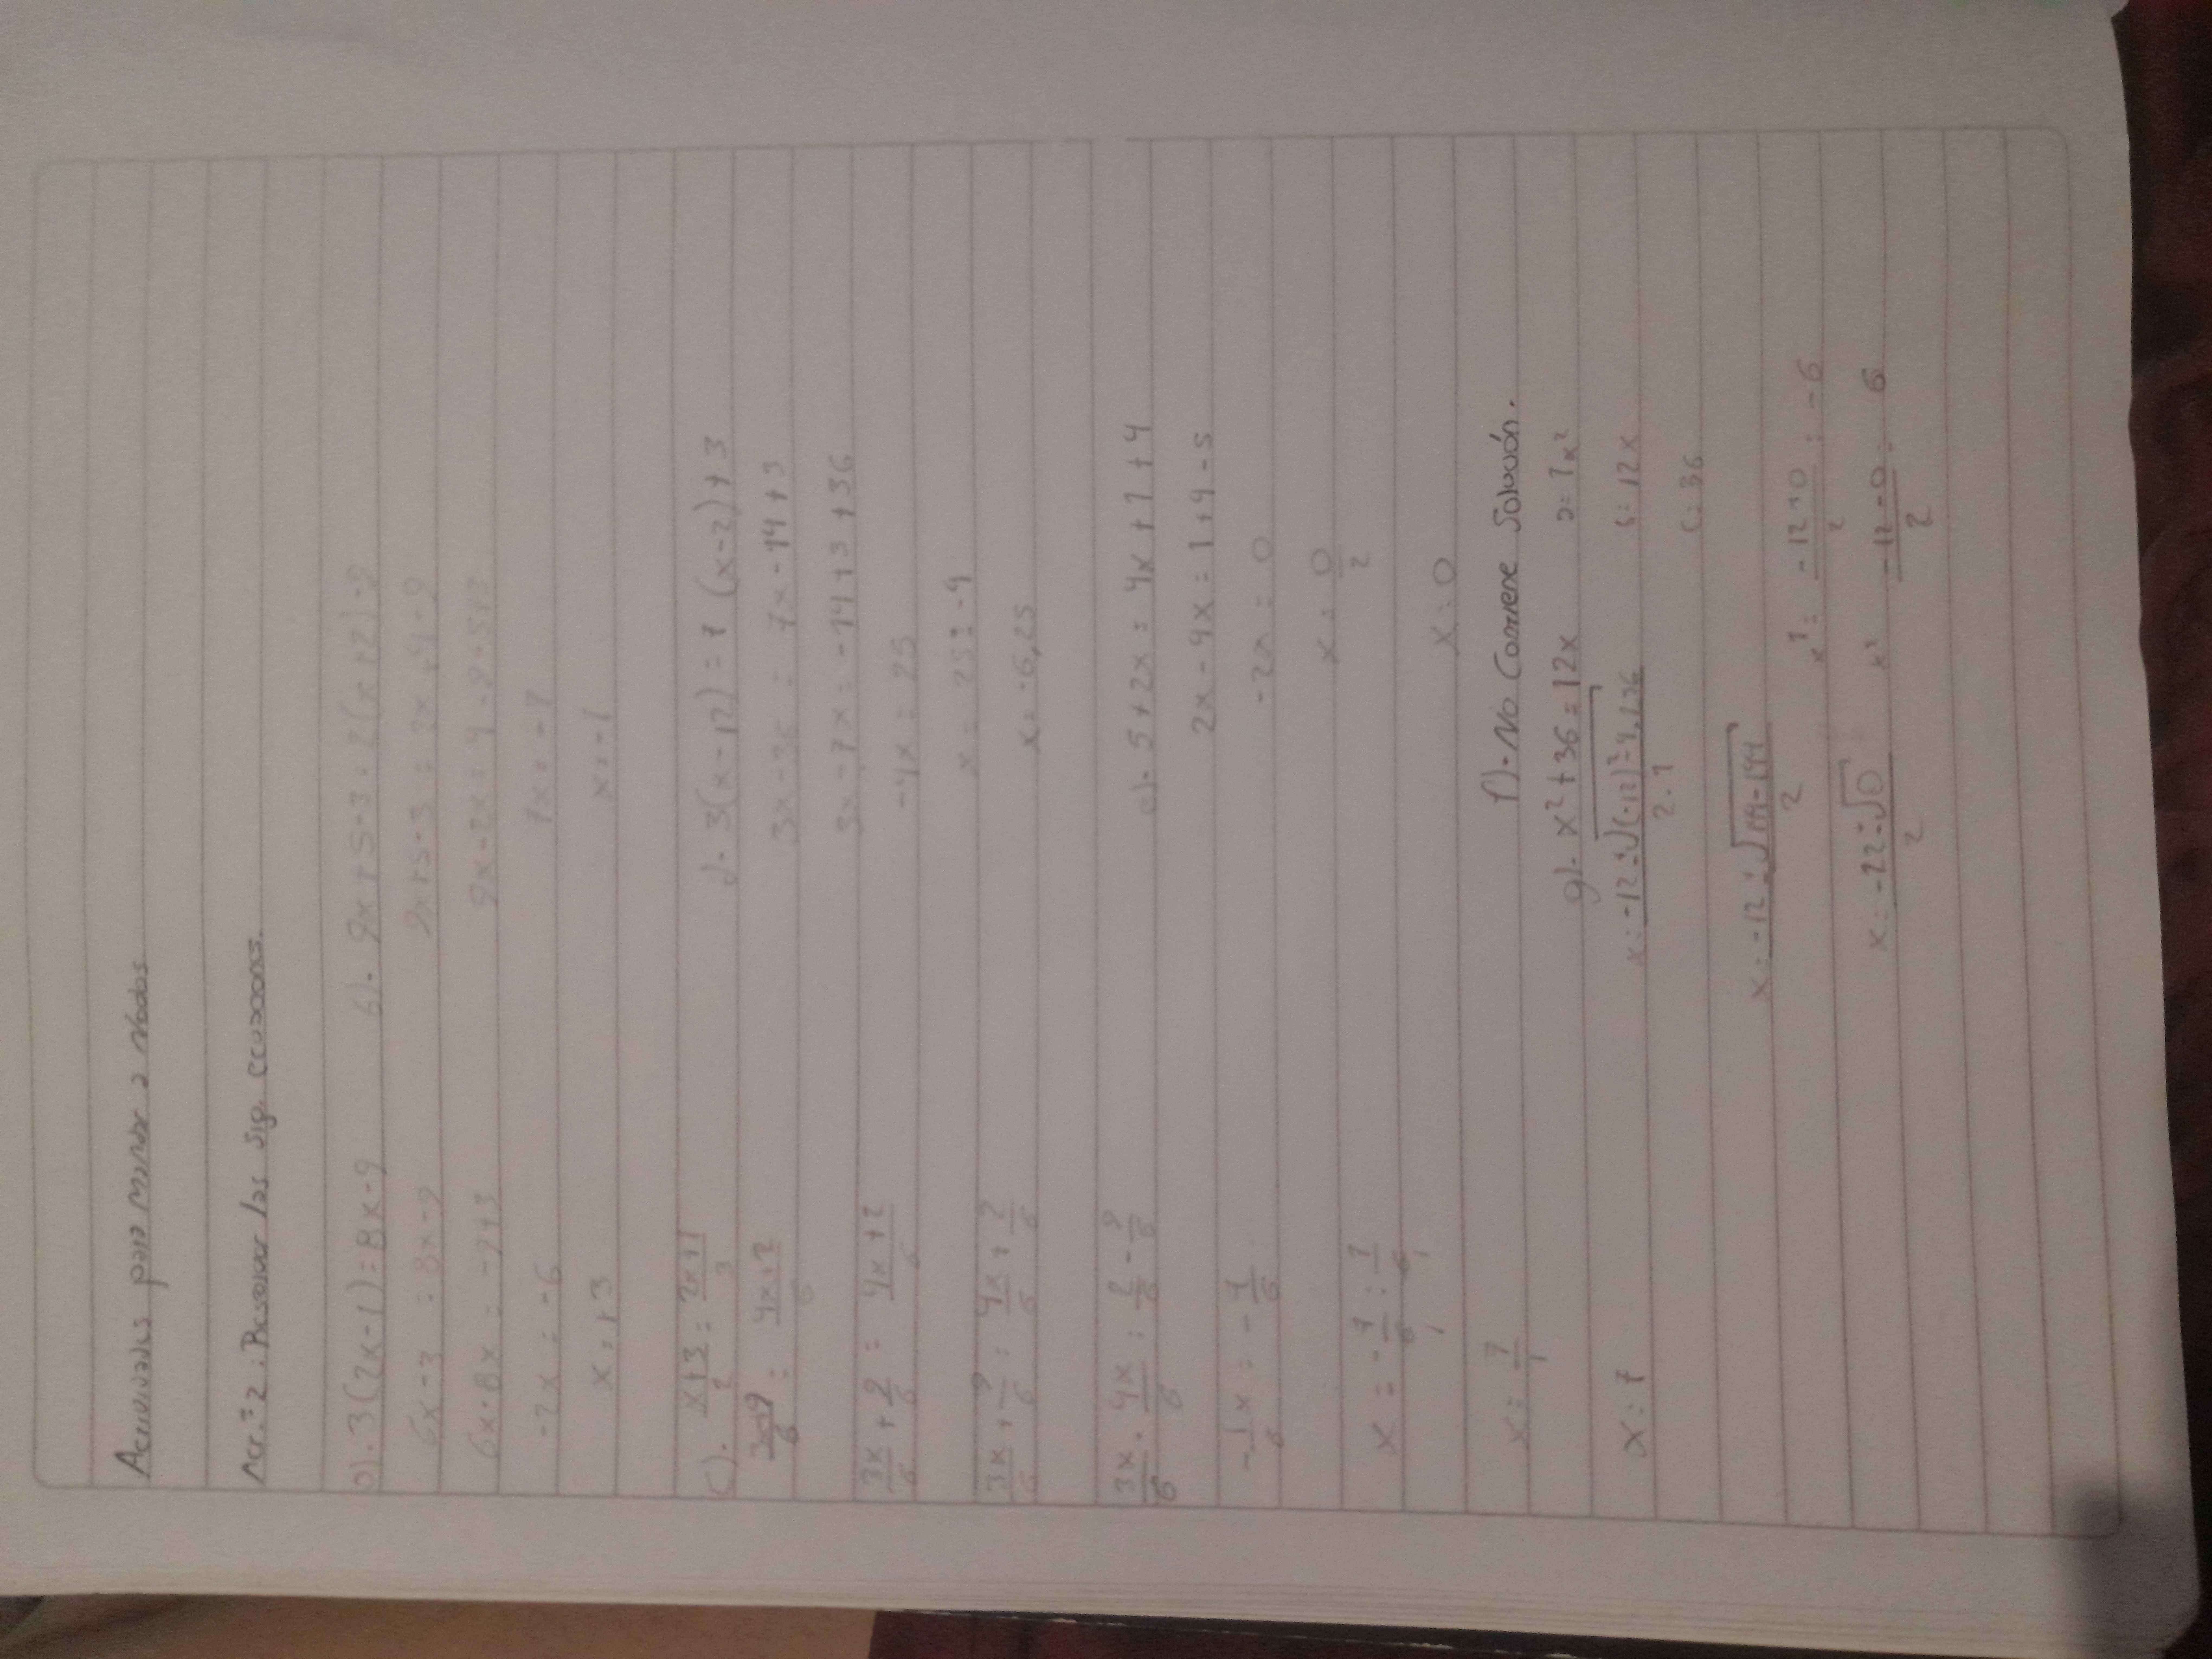 Actividades para mandar a Nodos
Act. 2: Resolver las sig. ecuaciones.
a). 3(2x-1)=8x-9
6x-3 = 8x-9
6x-8x = -9+3
-2x = -6
x=+3
b). 9x+5-3=2(x+2)-9
9x+5-3 = 2x+4-9
9x-2x=4-9-5+3
7x=-7
x=-1
c). x+3/2 = 2x+1/3
3x+9/6 = 4x+2/6
3x/6 + 9/6 = 4x+2/6
3x/6 + 9/6 = 4x/6 + 2/6
3x/6 - 4x/6 = 2/6 - 9/6
-1/6 x = -7/6
x = -7/6 : 1/6
x = 7/1
x=7
d). 3(x-12)=7(x-2)+3
3x-36 = 7x-14+3
3x-7x=-14+3+36
-4x=25
x=25:-4
x=-6,25
e). 5+2x=4x+1+4
2x-4x=1+4-5
-2x=0
x=0/2
x=0
f). No Contiene Solución.
g). x²+36=12x
a=1x²
b=12x
c=36
x=-12±√(-12)²-4.1.36/2.1
x=-12±√144-144/2
x=-12±√0/2
x¹=-12+0/2=-6
x²=-12-0/2= 6